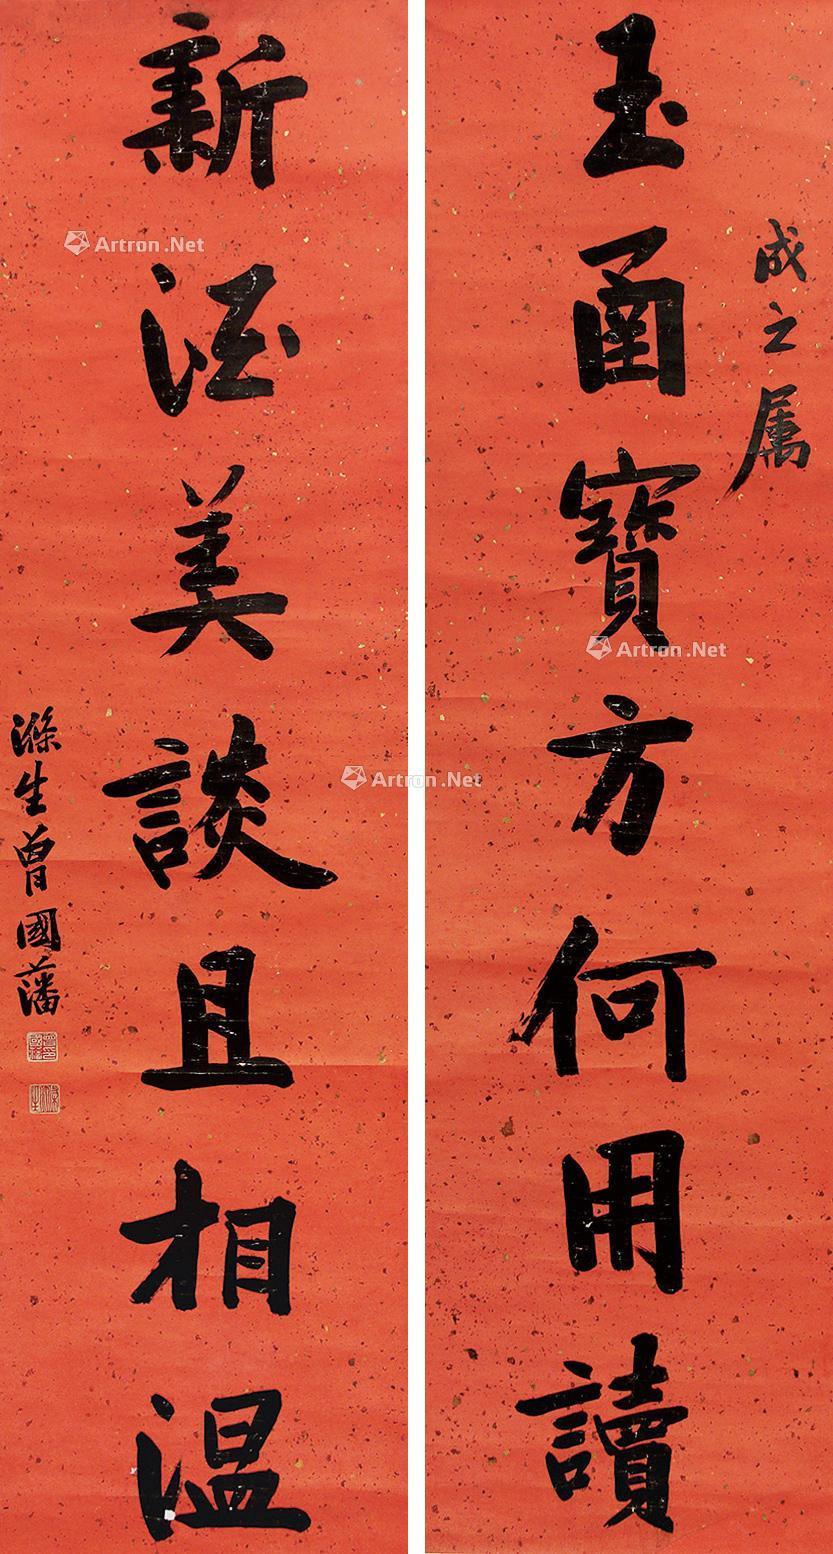 成之属
玉函寶方何用讀
新酒美談且相温
滌生曾國藩
Artron.Net
Artron.Net
Artron.Net